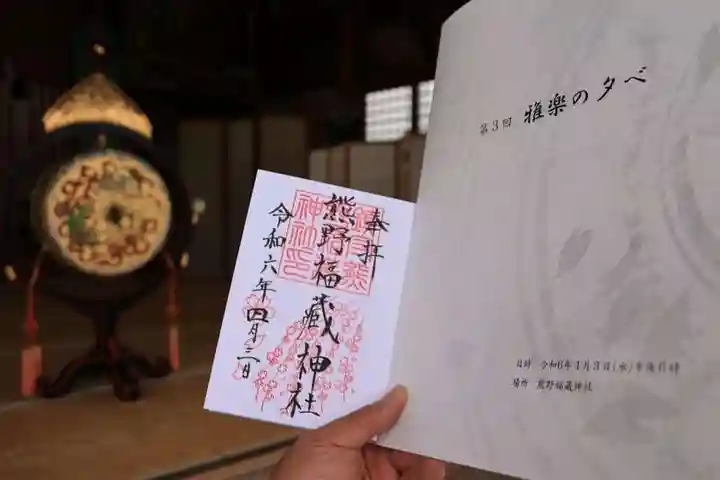 奉拝
熊野福藏神社
令和六年四月三日
第3回 雅楽の夕べ
日時 令和6年4月3日(水)午後6時
場所 熊野福藏神社